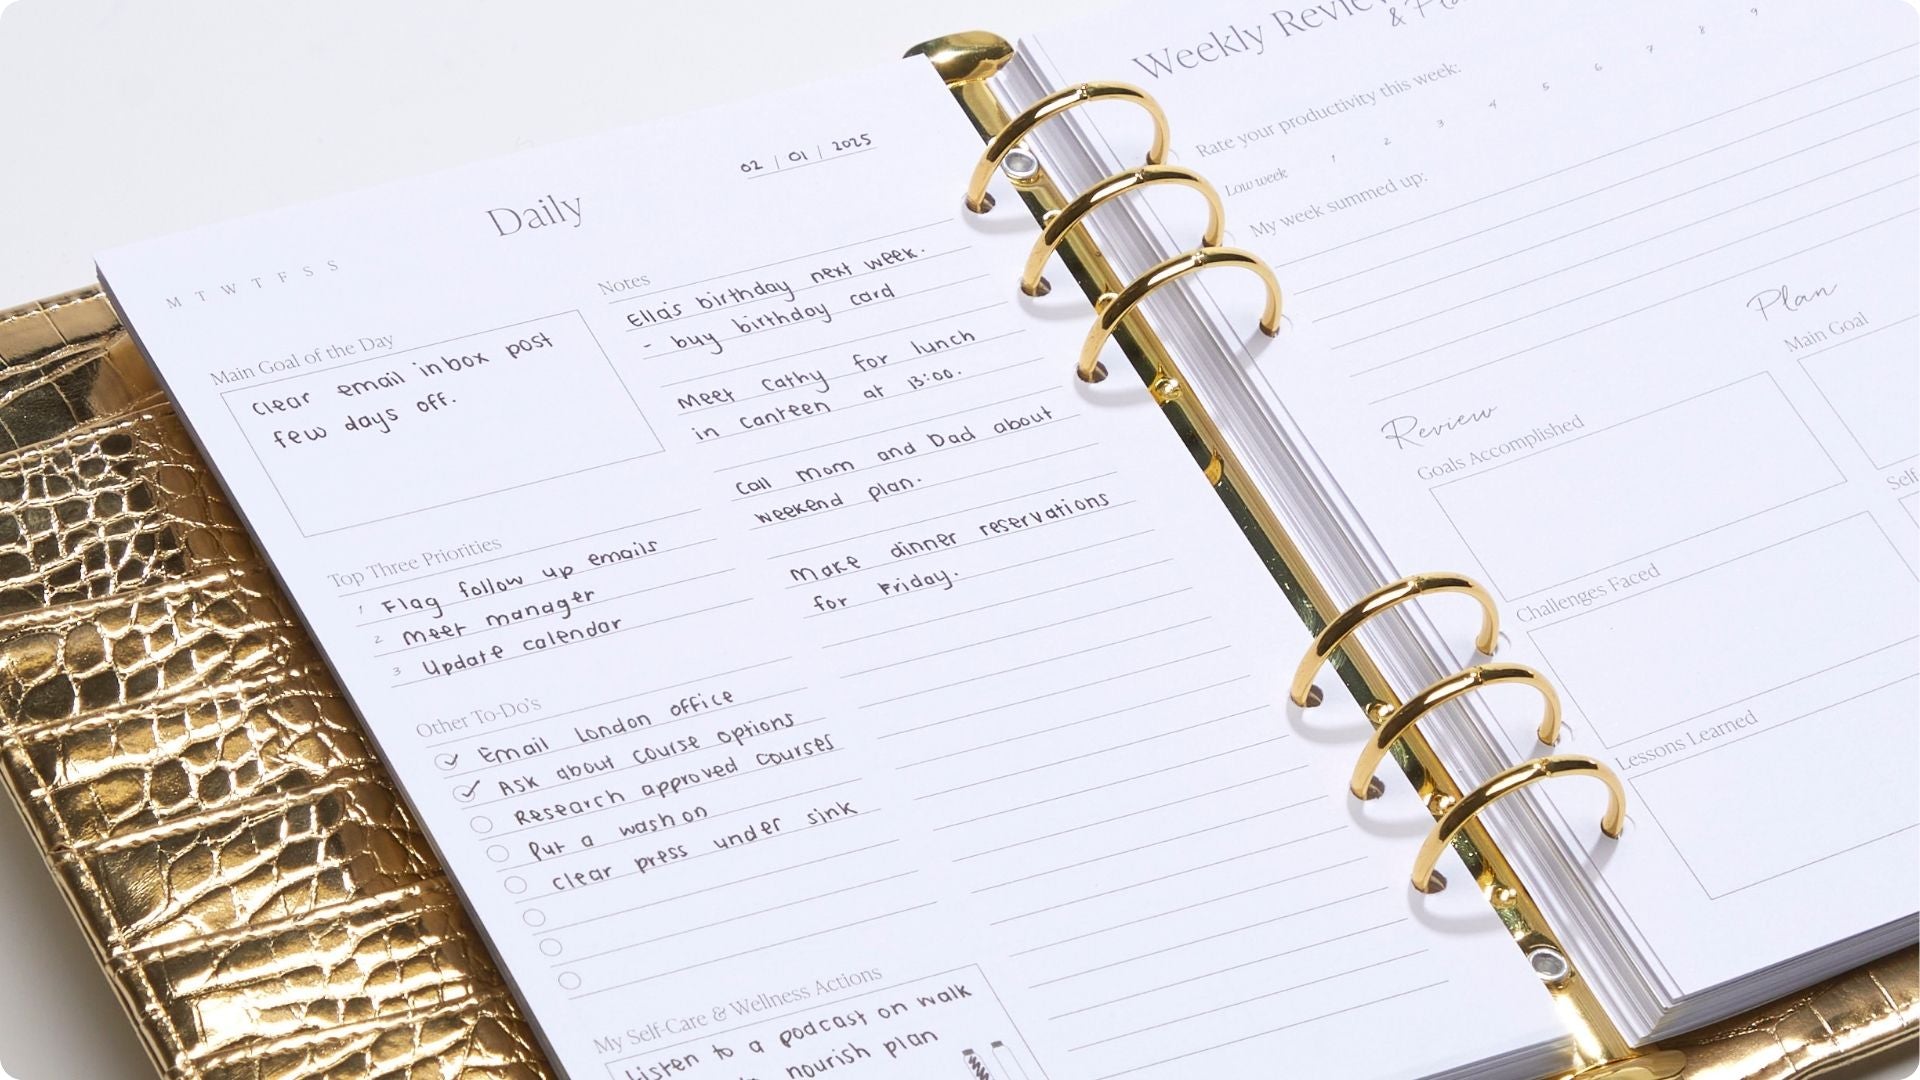 02 | 01 | 2025
Daily
M T W T F S S
Main Goal of the Day
Clear email inbox post
few days off.
Top Three Priorities
1 Flag follow up emails
2 Meet manager
3 Update calendar
Other To-Do's
Email London office
Ask about course options
Research approved courses
Put a wash on
Clear press under sink
My Self-Care & Wellness Actions
Listen to a podcast on walk
nourish plan
Notes
Ella's birthday next week.
- buy birthday card
Meet Cathy for lunch
in canteen at 13:00.
Call Mom and Dad about
weekend plan.
Make dinner reservations
for Friday.
Weekly Review
&
Rate your productivity this week:
Low week 1 2 3 4 5 6 7 8 9
My week summed up:
Review
Goals Accomplished
Challenges Faced
Lessons Learned
Plan
Main Goal
Self